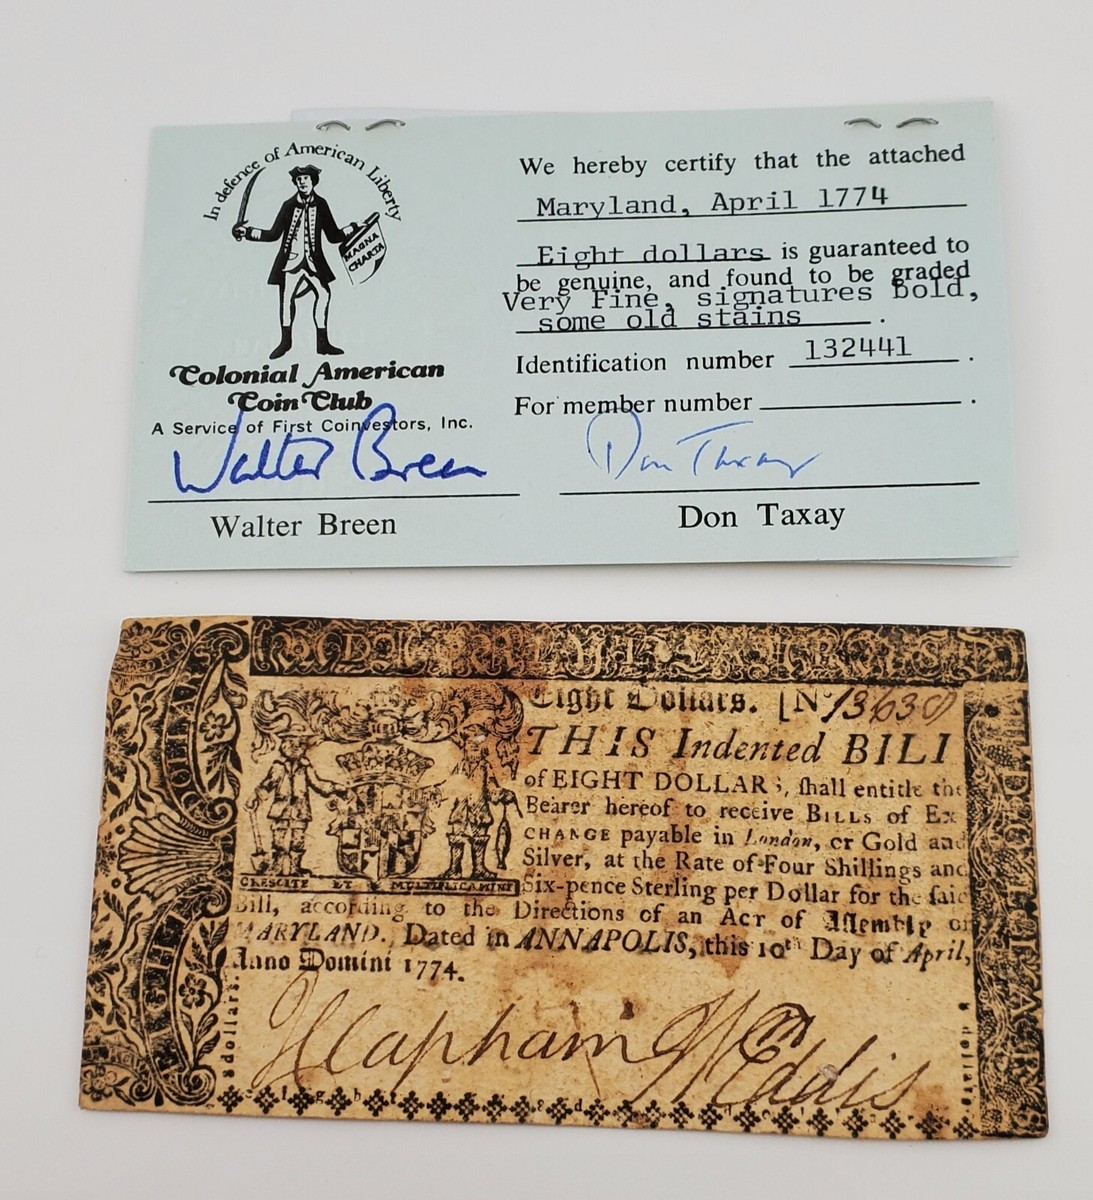 In defence of American Liberty
MAGNA
CHARTA
Colonial American
Coin Club
A Service of First Coinvestors, Inc.
Walter Breen
Walter Breen
We hereby certify that the attached
Maryland, April 1774
Eight dollars is guaranteed to
be genuine, and found to be graded
Very Fine, signatures bold,
some old stains.
Identification number 132441.
For member number .
Don Taxay
Don Taxay
Eight Dollars. [No 13630
THIS Indented BILL
of EIGHT DOLLARS, shall entitle the
Bearer hereof to receive BILLS of Ex
CHANGE payable in London, or Gold and
Silver, at the Rate of Four Shillings and
Six-pence Sterling per Dollar for the said
Bill, according to the Directions of an Act of Assembly of
MARYLAND. Dated in ANNAPOLIS, this 10th Day of April,
Anno Domini 1774.
CRESCITE ET MULTIPLICAMINI
J Clapham
W Eddis
8 dollars.